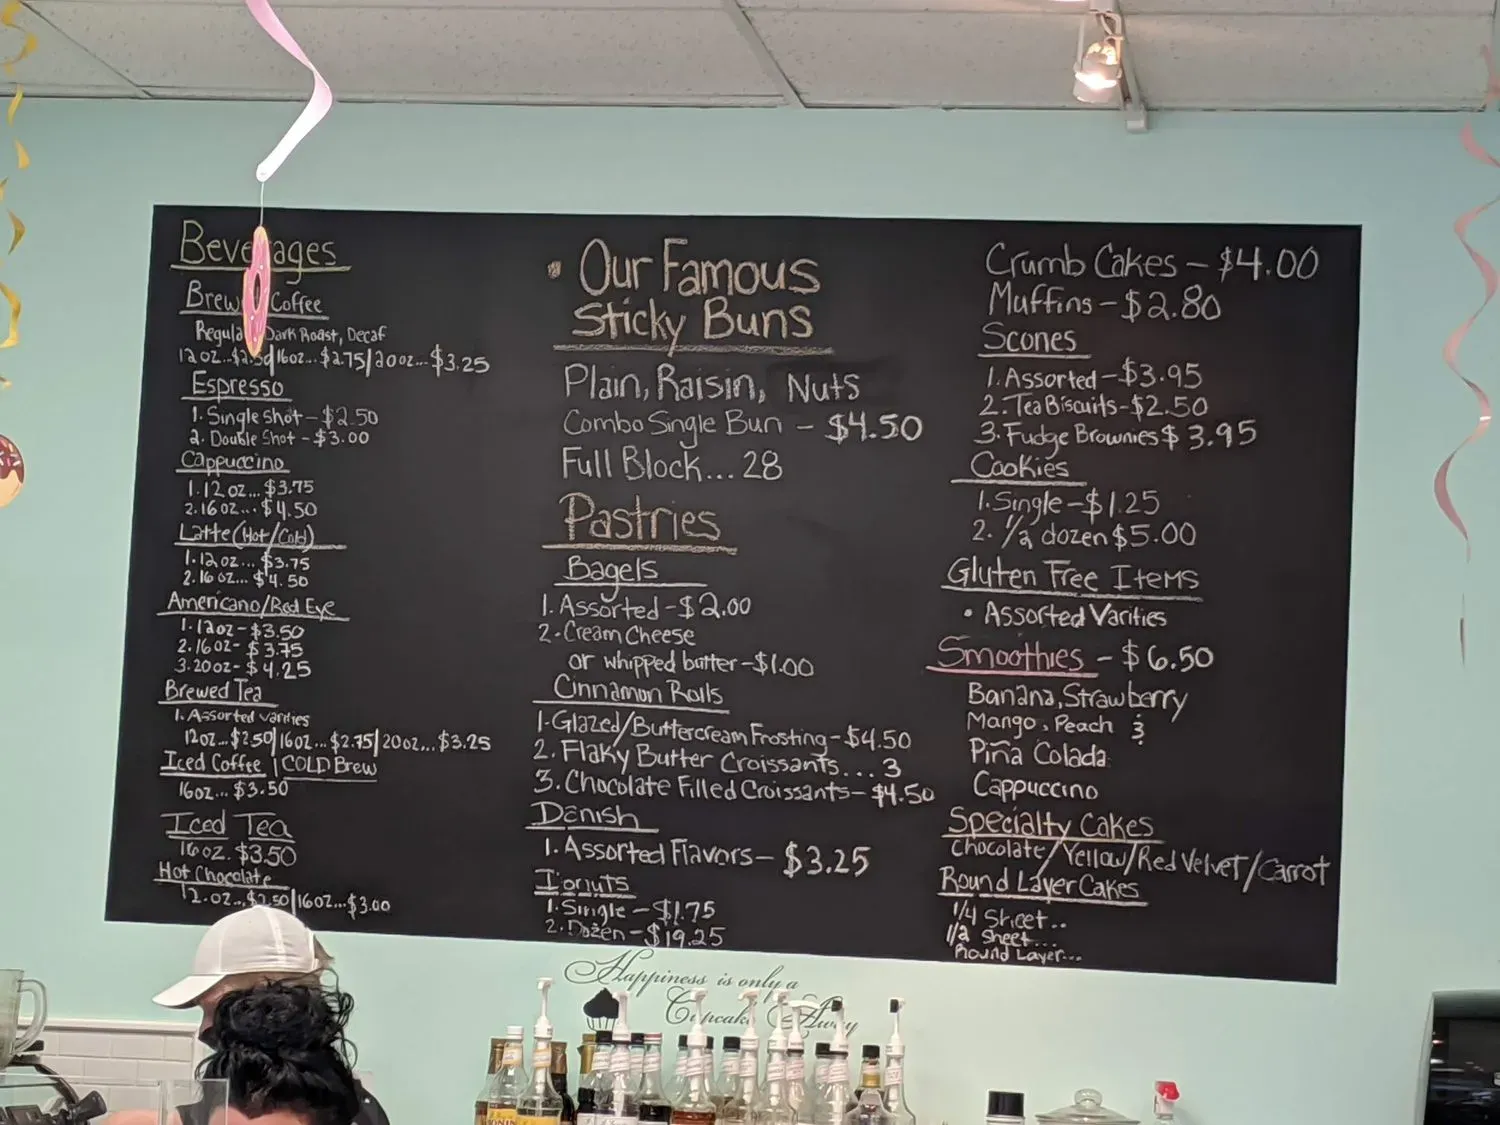 Beverages
Brewed Coffee
Regular, Dark Roast, Decaf
12 oz...$2.50|16oz...$2.75|20oz...$3.25
Espresso
1. Single Shot-$2.50
2. Double Shot-$3.00
Cappuccino
1. 12 oz... $3.75
2. 16 oz... $4.50
Latte (Hot/Cold)
1. 12 oz... $3.75
2. 16 oz... $4.50
Americano/Red Eye
1. 12oz- $3.50
2. 16oz- $3.75
3. 20oz- $4.25
Brewed Tea
1. Assorted varities
12oz...$2.50|16oz...$2.75|20oz...$3.25
Iced Coffee | COLD Brew
16oz... $3.50
Iced Tea
16oz. $3.50
Hot Chocolate
12.oz...$2.50|16oz...$3.00
• Our Famous
Sticky Buns
Plain, Raisin, Nuts
Combo Single Bun - $4.50
Full Block... 28
Pastries
Bagels
1. Assorted-$2.00
2. Cream Cheese
or whipped butter-$1.00
Cinnamon Rolls
1. Glazed/Buttercream Frosting-$4.50
2. Flaky Butter Croissants... 3
3. Chocolate Filled Croissants-$4.50
Danish
1. Assorted Flavors- $3.25
Donuts
1. Single-$1.75
2. Dozen-$19.25
Crumb Cakes-$4.00
Muffins-$2.80
Scones
1. Assorted-$3.95
2. Tea Biscuits-$2.50
3. Fudge Brownies $3.95
Cookies
1. Single-$1.25
2. 1/2 dozen $5.00
Gluten Free Items
• Assorted Varities
Smoothies - $6.50
Banana, Strawberry
Mango, Peach &
Piña Colada
Cappuccino
Specialty Cakes
Chocolate/Yellow/Red Velvet/Carrot
Round Layer Cakes
1/4 Sheet..
1/2 Sheet...
Round Layer...
Happiness is only a
Cupcake Away